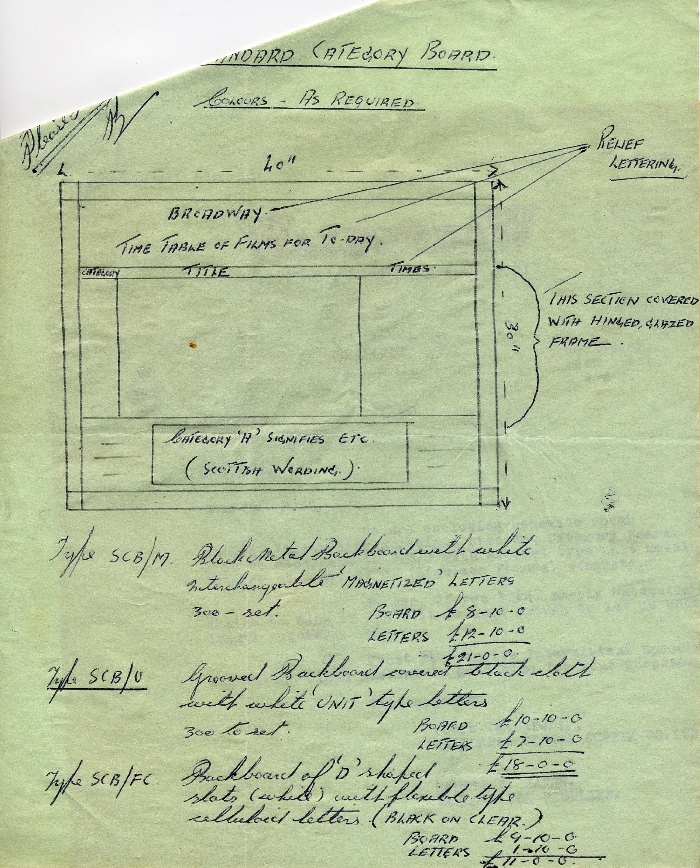 STANDARD CATEGORY BOARD.
COLOURS - AS REQUIRED
Please
40"
RELIEF
LETTERING.
BROADWAY.
TIME TABLE OF FILMS FOR TO-DAY.
CATEGORY TITLE TIMES.
THIS SECTION COVERED
WITH HINGED, GLAZED
FRAME.
30"
CATEGORY 'A' SIGNIFIES ETC.
(SCOTTISH WORDING.)
Type SCB/M. Black Metal Backboard with white
interchangeable 'MAGNETIZED' LETTERS
300 - set. BOARD £8-10-0
LETTERS £12-10-0
£21-0-0.
Type SCB/U Grooved Backboard covered black cloth
with white 'UNIT' type letters
300 to set. BOARD £10-10-0
LETTERS £7-10-0
£18-0-0
Type SCB/FC Backboard of 'D' shaped
slats (white) with flexible type
celluloid letters (BLACK ON CLEAR.)
BOARD £9-10-0
LETTERS 1-10-0
£11-0-0.